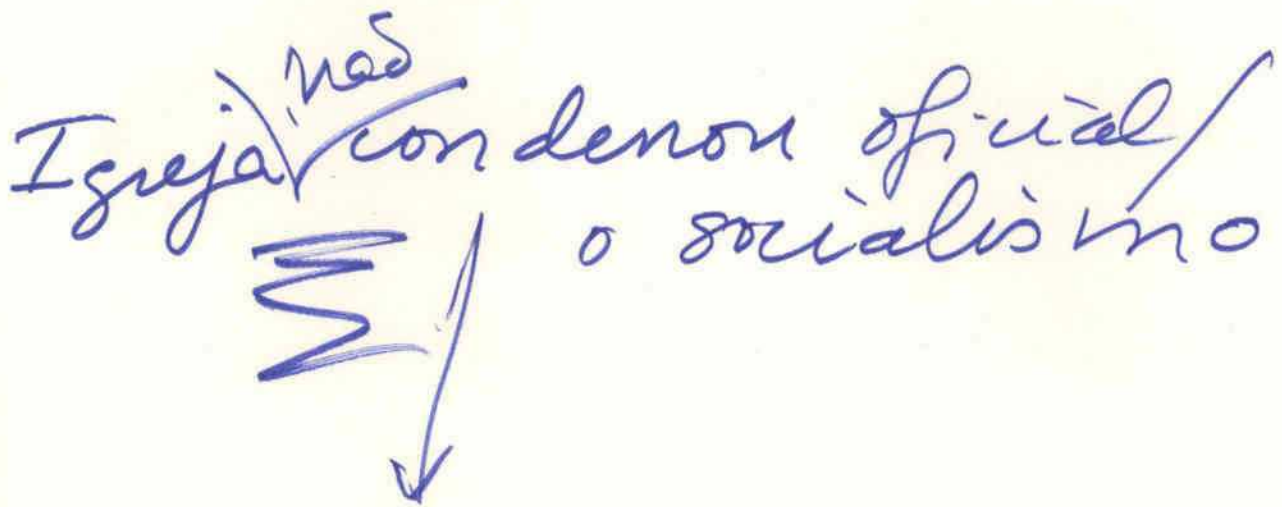 Igreja não condenou oficial/
o socialismo